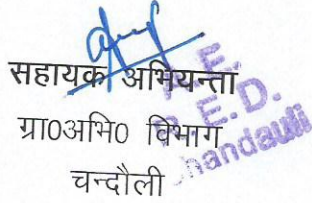 सहायक अभियन्ता
ग्रा0अभि0 विभाग
चन्दौली
A.E.
R.E.D.
Chandauli